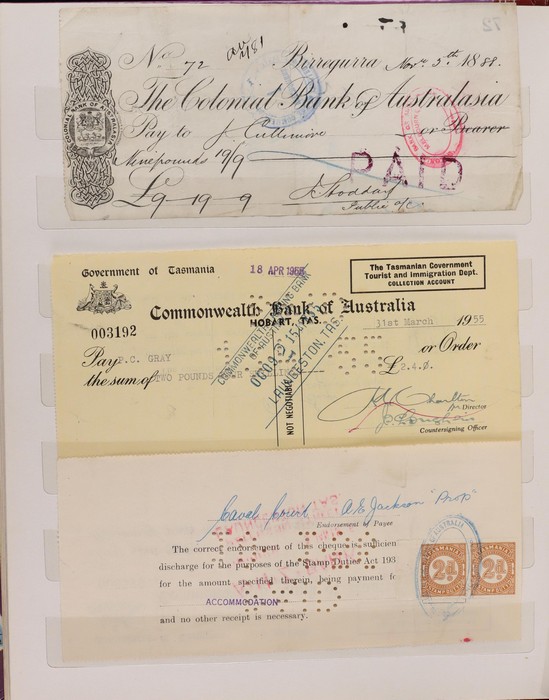 72
No 72
Birregurra Nov. 5th 1888.
The Colonial Bank of Australasia
COLONIAL BANK OF AUSTRALASIA
Pay to J. Cullimore or Bearer
Nine pounds 19/9
PAID
£9-19-9
J Stoddart
Public a/c
Government of Tasmania
18 APR 1955
The Tasmanian Government
Tourist and Immigration Dept.
COLLECTION ACCOUNT
Commonwealth Bank of Australia
HOBART, TAS.
003192
31st March 1955
Pay P.C. GRAY or Order
the sum of TWO POUNDS £2.4.0.
COMMONWEALTH BANK
LAUNCESTON, TAS.
NOT NEGOTIABLE
Director
Countersigning Officer
A E Jackson "Prop"
Endorsement of Payee
The correct endorsement of this cheque is sufficien
discharge for the purposes of the Stamp Duties Act 193
for the amount specified therein, being payment f
ACCOMMODATION
and no other receipt is necessary.
TASMANIA TASMANIA
2d 2d
STAMP DUTY STAMP DUTY